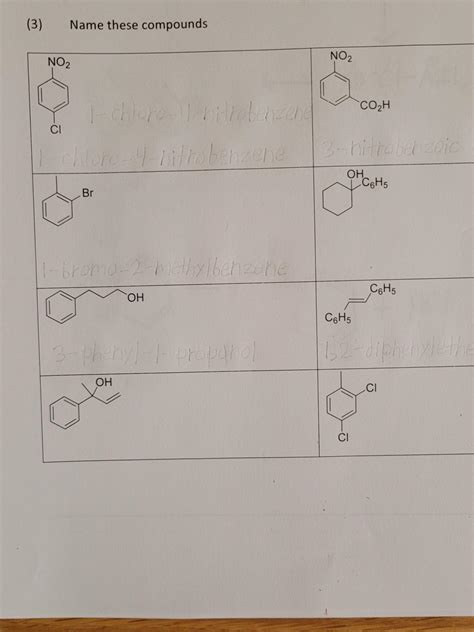 (3) Name these compounds
NO2
Cl
1-chloro-4-nitrobenzene
1-chloro-4-nitrobenzene
NO2
CO2H
3-nitrobenzoic
Br
1-bromo-2-methylbenzene
OH
C6H5
OH
3-phenyl-1-propanol
C6H5
C6H5
1,2-diphenylethe
OH
Cl
Cl